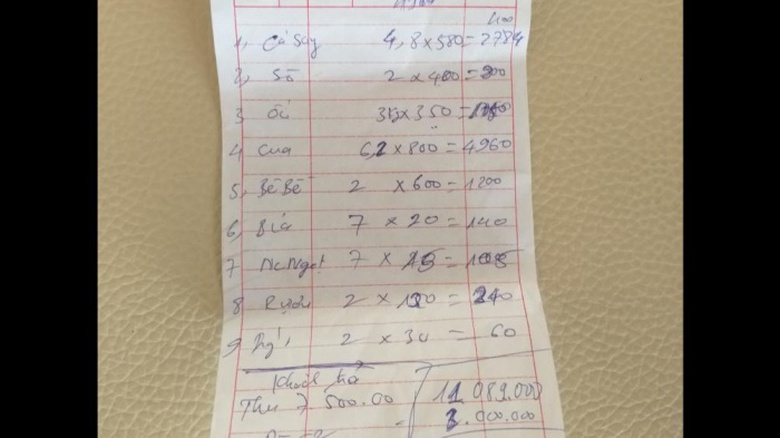 400
1, Cá Say 4,8 x 580 = 2784
2, Sò 2 x 400 = 800
3 Ốc 3,5 x 350 =
4 Cua 6,2 x 800 = 4960
5, Bề Bề 2 x 600 = 1200
6, Bia 7 x 20 = 140
7 Nc Ngọt 7 x 15 = 105
8 Rượu 2 x 120 = 240
9 2 x 30 = 60
Khách trả
Thu 7 500.00 11 089.000
3.000.000